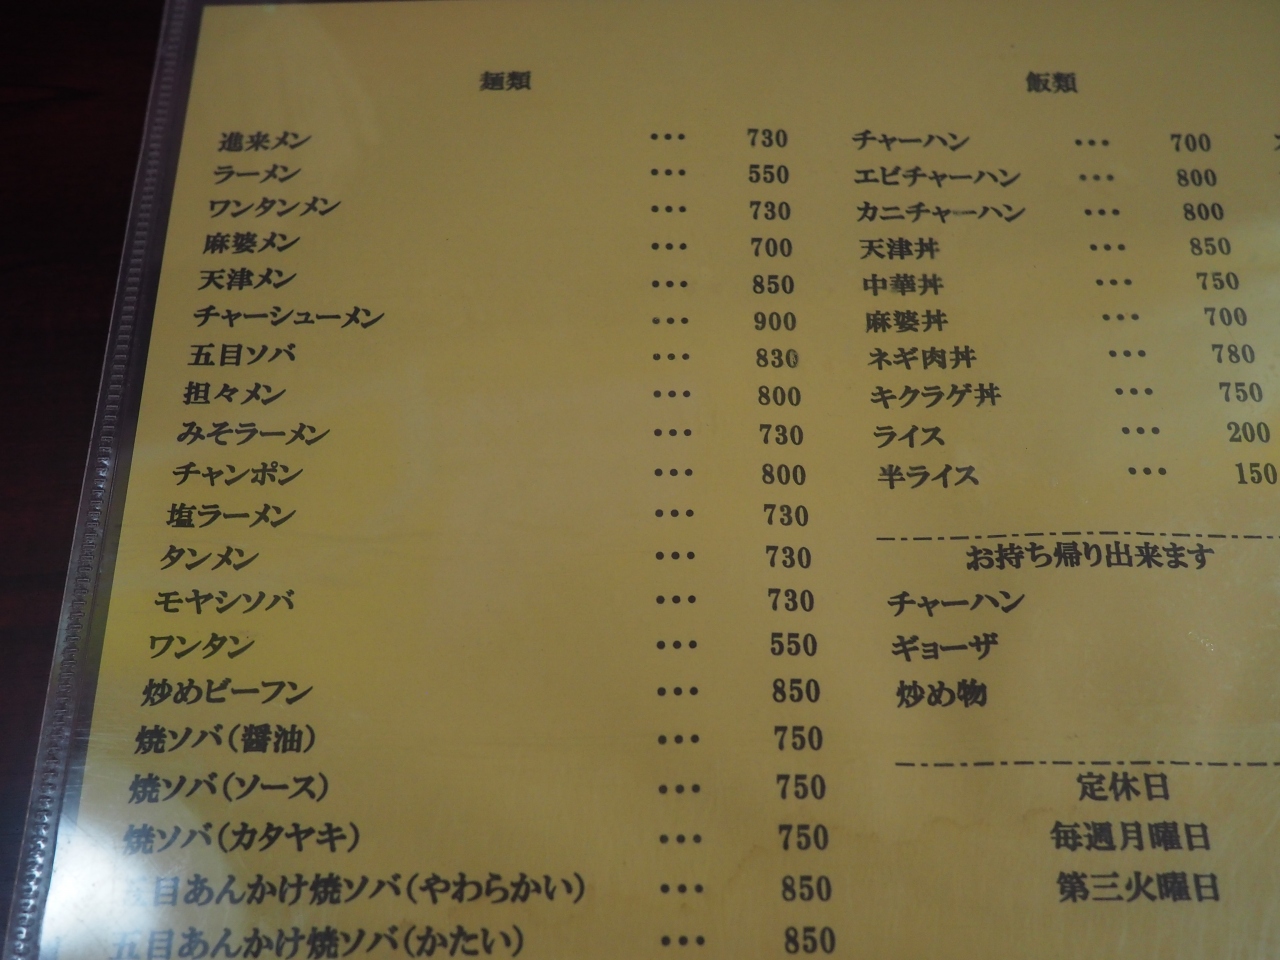 麺類
進来メン ・・・ 730
ラーメン ・・・ 550
ワンタンメン ・・・ 730
麻婆メン ・・・ 700
天津メン ・・・ 850
チャーシューメン ・・・ 900
五目ソバ ・・・ 830
担々メン ・・・ 800
みそラーメン ・・・ 730
チャンポン ・・・ 800
塩ラーメン ・・・ 730
タンメン ・・・ 730
モヤシソバ ・・・ 730
ワンタン ・・・ 550
炒めビーフン ・・・ 850
焼ソバ(醤油) ・・・ 750
焼ソバ(ソース) ・・・ 750
焼ソバ(カタヤキ) ・・・ 750
五目あんかけ焼ソバ(やわらかい) ・・・ 850
五目あんかけ焼ソバ(かたい) ・・・ 850
飯類
チャーハン ・・・ 700
エビチャーハン ・・・ 800
カニチャーハン ・・・ 800
天津丼 ・・・ 850
中華丼 ・・・ 750
麻婆丼 ・・・ 700
ネギ肉丼 ・・・ 780
キクラゲ丼 ・・・ 750
ライス ・・・ 200
半ライス ・・・ 150
お持ち帰り出来ます
チャーハン
ギョーザ
炒め物
定休日
毎週月曜日
第三火曜日